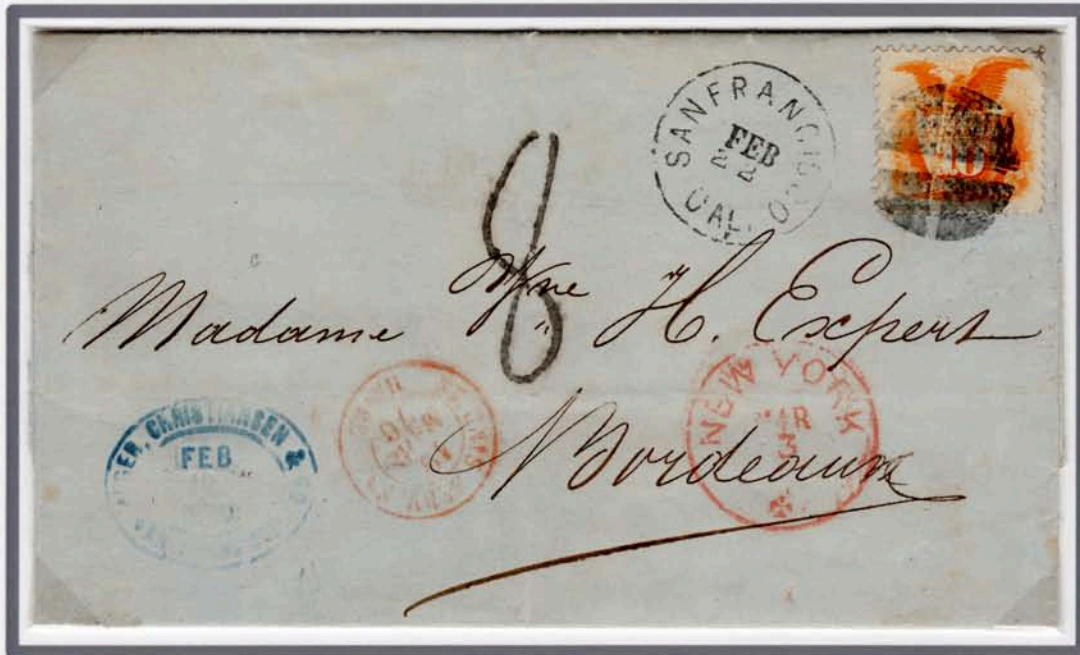 SAN FRANCISCO
FEB
22
CAL.
10
8
Madame Mme H. Expert
Bordeaux
NEW YORK
MAR
3
CHRISTIANSEN &
FEB